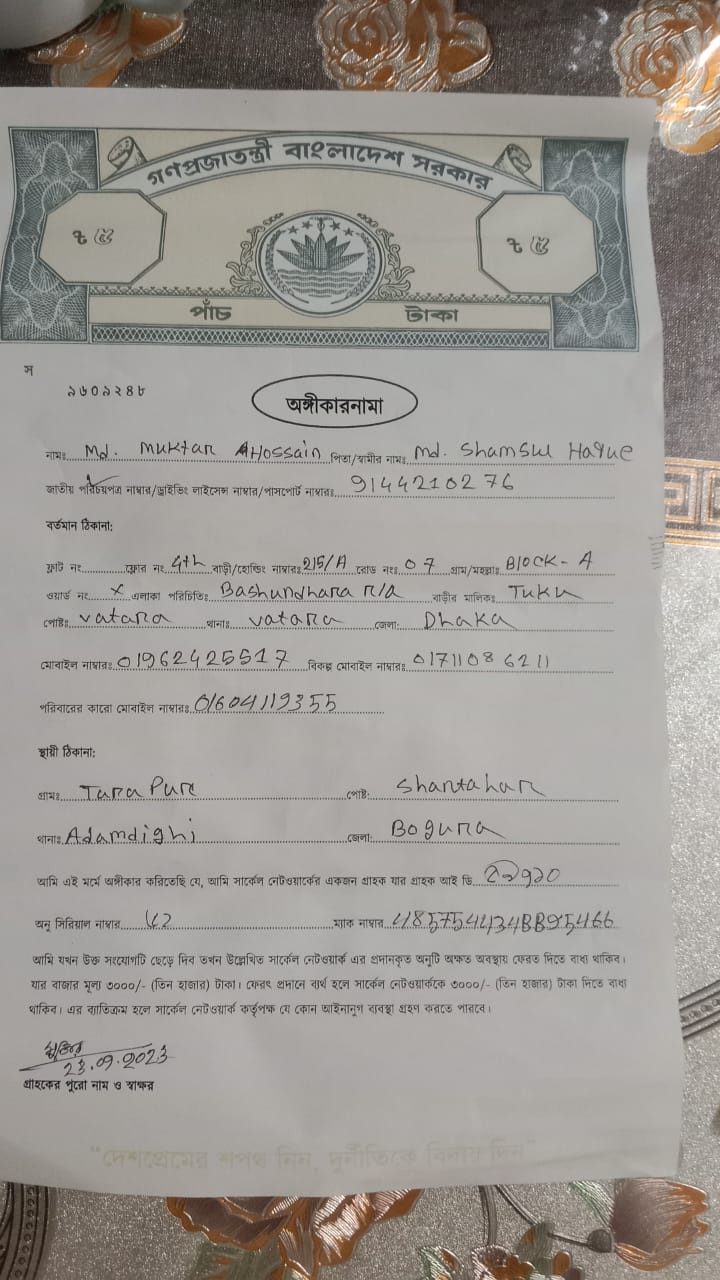 গণপ্রজাতন্ত্রী বাংলাদেশ সরকার
৳ ৫ ৳ ৫
পাঁচ টাকা
স
৯৬০৯২৪৮
অঙ্গীকারনামা
নামঃ Md. Muktar Hossain পিতা/স্বামীর নামঃ Md. Shamsul Haque
জাতীয় পরিচয়পত্র নাম্বার/ড্রাইভিং লাইসেন্স নাম্বার/পাসপোর্ট নাম্বারঃ 9144210276
বর্তমান ঠিকানা:
ফ্লাট নং ফ্লোর নং 4th বাড়ী/হোল্ডিং নাম্বারঃ 215/A রোড নংঃ 07 গ্রাম/মহল্লাঃ Block-A
ওয়ার্ড নং X এলাকা পরিচিতিঃ Bashundhara R/A বাড়ীর মালিকঃ Tuku
পোষ্টঃ vatara থানাঃ vatara জেলা: Dhaka
মোবাইল নাম্বারঃ 01962425517 বিকল্প মোবাইল নাম্বারঃ 01711086211
পরিবারের কারো মোবাইল নাম্বারঃ 01604119355
স্থায়ী ঠিকানা:
গ্রামঃ Tara Pur পোষ্ট: Shantahar
থানাঃ Adamdighi জেলা: Bogura
আমি এই মর্মে অঙ্গীকার করিতেছি যে, আমি সার্কেল নেটওয়ার্কের একজন গ্রাহক যার গ্রাহক আই ডি
অনু সিরিয়াল নাম্বার ম্যাক নাম্বার 485754434BB95466
আমি যখন উক্ত সংযোগটি ছেড়ে দিব তখন উল্লেখিত সার্কেল নেটওয়ার্ক এর প্রদানকৃত অনুটি অক্ষত অবস্থায় ফেরত দিতে বাধ্য থাকিব।
যার বাজার মূল্য ৩০০০/- (তিন হাজার) টাকা। ফেরৎ প্রদানে ব্যর্থ হলে সার্কেল নেটওয়ার্ককে ৩০০০/- (তিন হাজার) টাকা দিতে বাধ্য
থাকিব। এর ব্যতিক্রম হলে সার্কেল নেটওয়ার্ক কর্তৃপক্ষ যে কোন আইনানুগ ব্যবস্থা গ্রহণ করতে পারবে।
23.09.2023
গ্রাহকের পুরো নাম ও স্বাক্ষর
"দেশপ্রেমের শপথ নিন, দুর্নীতিকে বিদায় দিন"